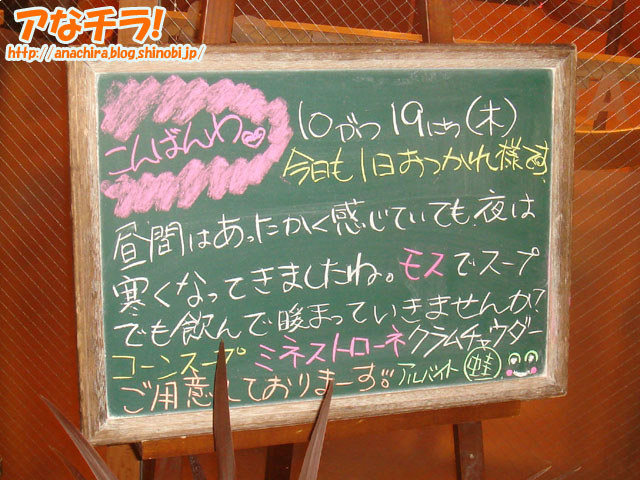 アなチラ!
http://anachira.blog.shinobi.jp/
こんばんわ
10がつ19にち(木)
今日も1日おつかれ様です
昼間はあったかく感じていても、夜は
寒くなってきましたね。モスでスープ
でも飲んで暖まっていきませんか?
コーンスープ ミネストローネ クラムチャウダー
ご用意しておりまーす!! アルバイト 蛙